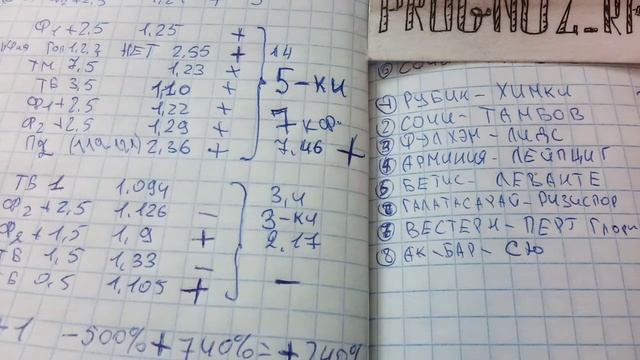 Ф1+2,5 1,25 +
Гол 1,2,3 НЕТ 2,55 + 14
ТМ 7,5 1,23 + 5-КИ
ТБ 3,5 1,10 +
Ф1+2,5 1,22 + 7 КФ-
Ф2+2,5 1,29 +
П2 2,36 + 7,46 +
ТБ 1 1.094 3,4
Ф2+2,5 1.126 - 3-КИ
Ф2+1,5 1,9 + 2.17
ТБ 1,5 1,33 -
ТБ 0,5 1,105 + -
+1 -500%+740%=+240%
PROGNOZ.RF
① РУБИН-ХИМКИ
② СОЧИ-ТАМБОВ
③ ФУЛХЭМ-ЛИДС
④ АРМИНИЯ-ЛЕЙПЦИГ
⑤ БЕТИС-ЛЕВАНТЕ
⑥ ГАЛАТАСАРАЙ-РИЗЕСПОР
⑦ ВЕСТЕРН-ПЕРТ Глори
⑧ АК-БАР-СЮ